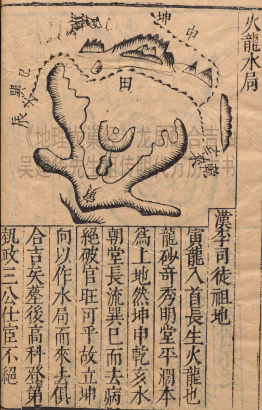 火龍水局
坤
申
田
巽
巳
辰
漢李司徒祖地
寅龍入首長生火龍也
龍砂竒秀明堂平濶本
為上地然坤申乾亥水
朝堂長流巽巳而去病
絶破官旺可平故立坤
向以作水局而來去俱
合吉矣塟後高科登第
執政三公仕宦不絕